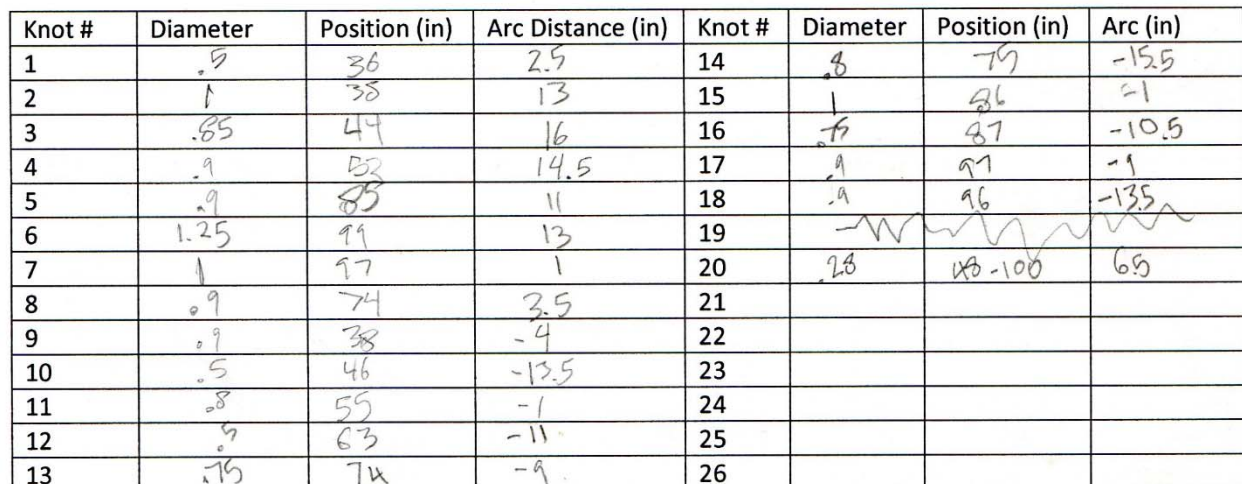 Knot # Diameter Position (in) Arc Distance (in) Knot # Diameter Position (in) Arc (in)
1 .5 36 2.5 14 .8 75 -15.5
2 1 38 13 15 1 86 -1
3 .85 44 16 16 .75 87 -10.5
4 .9 53 14.5 17 .9 97 -9
5 .9 85 11 18 .9 96 -13.5
6 1.25 99 13 19
7 1 97 1 20 .28 48-100 6.5
8 .9 74 3.5 21
9 .9 38 -4 22
10 .5 46 -13.5 23
11 .8 55 -1 24
12 .5 63 -11 25
13 .75 74 -9 26